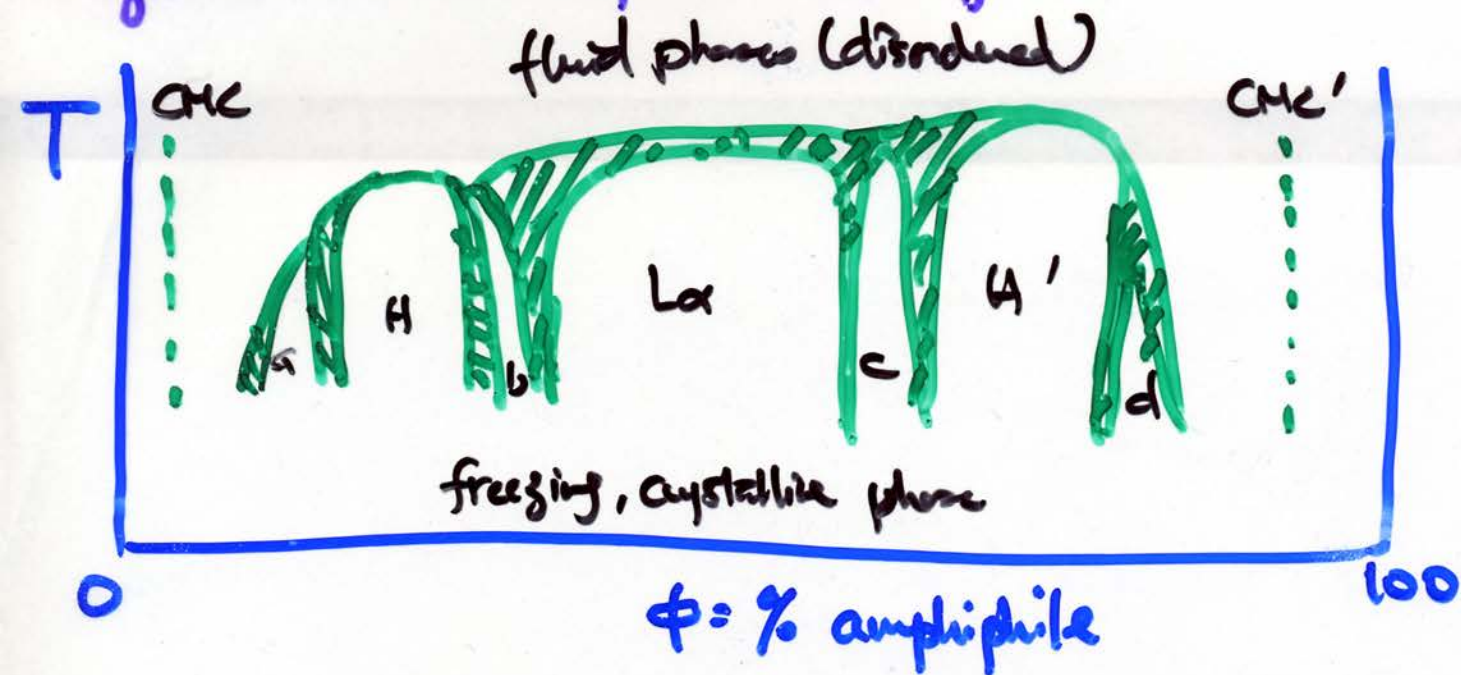 fluid phases (disordered)
T
CMC
CMC'
a
H
b
Lα
c
H'
d
freezing, crystalline phase
0
100
φ = % amphiphile